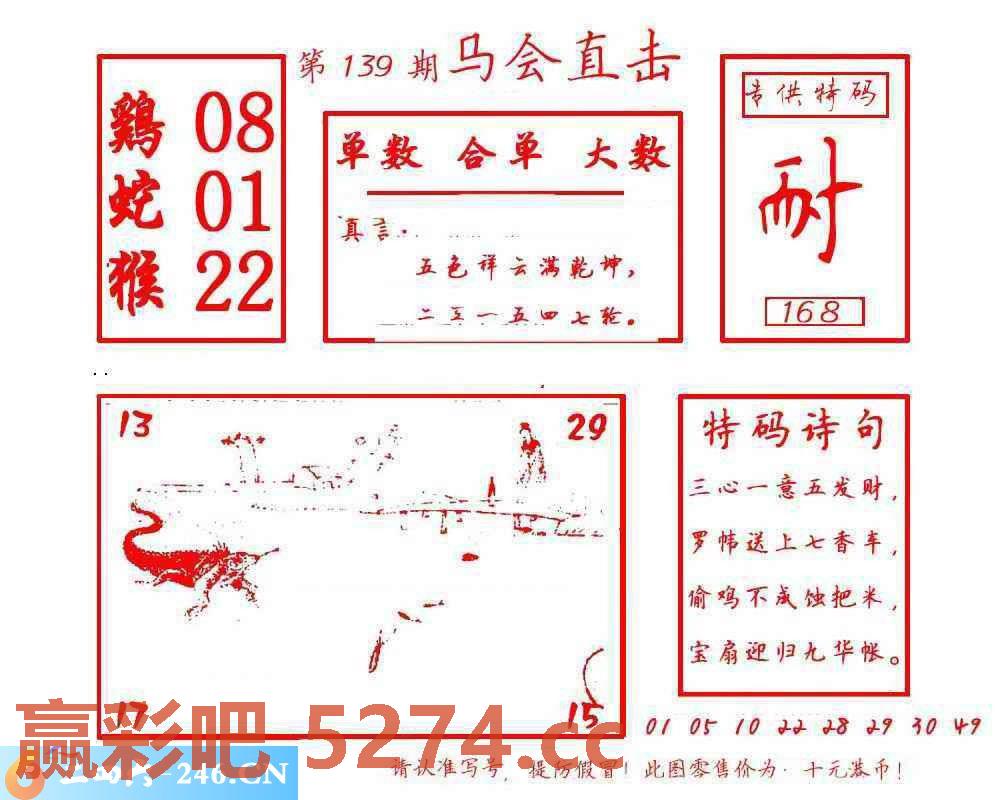 第139期马会直击
鷄 08
蛇 01
猴 22
单数 合单 大数
真言:
五色祥云满乾坤,
二五一五四七轮。
专供特码
耐
168
13
29
17
15
特码诗句
三心一意五发财,
罗帏送上七香车,
偷鸡不成蚀把米,
宝扇迎归九华帐。
01 05 10 22 28 29 30 49
赢彩吧 5274.cc
-246.CN
请认准写号,提防假冒!此图零售价为:十元港币!